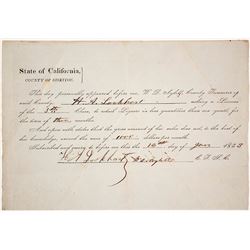 State of California,
COUNTY OF SISKIYOU.
This day personally appeared before me, W. D. Slight, County Treasurer of
said County, H. A. Lockhart asking a License
of the 5th Class, to retail Liquors in less quantities than one quart for
the term of three months.
And upon oath states that the gross amount of his sales does not to the best of his
knowledge, exceed the sum of 1000 dollars per month.
Subscribed and sworn to before me this 16th day of June 1853